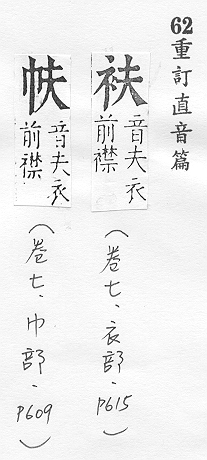 62重訂直音篇
衭
音夫衣
前襟
(卷七、衣部·P615)
帗
音夫衣
前襟
(卷七、巾部·P609)